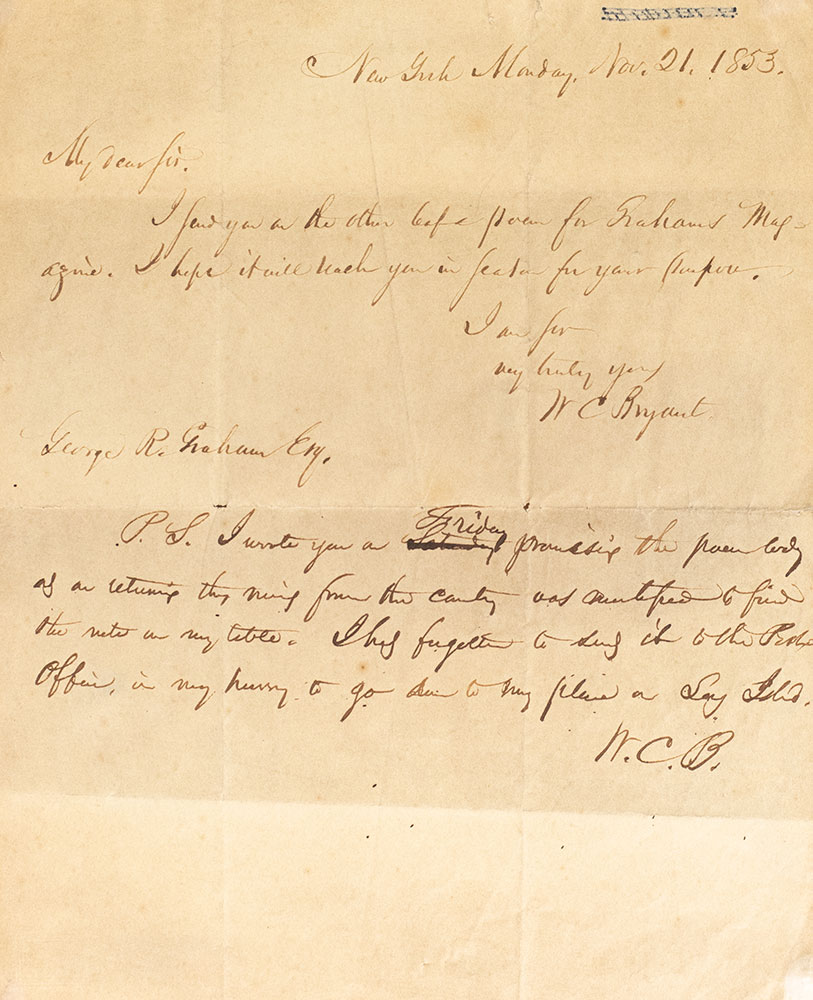 New York Monday, Nov. 21. 1853.
My dear sir.
I send you on the other leaf a poem for Grahams Mag-
azine. I hope it will reach you in season for your purpose.
I am sir
very truly yours
W C Bryant.
George R. Graham Esq.
P. S. I wrote you on Saturday Friday promising the poem today
as on returning this morning from the country was mortified to find
the note on my table. I had forgotten to send it to the Post
Office, in my hurry to go down to my place on Long Island.
W. C. B.